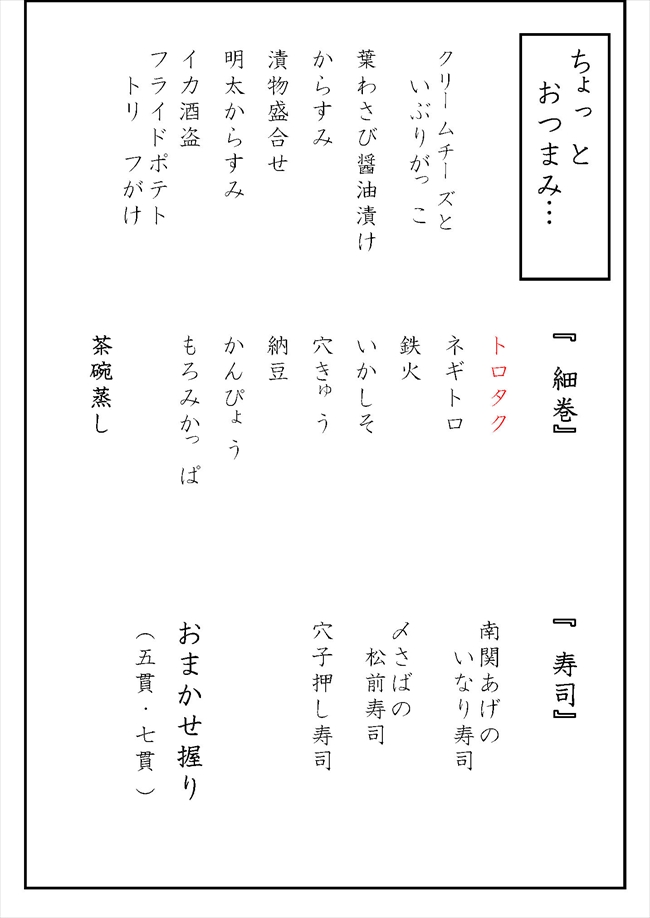 ちょっと
おつまみ…
クリームチーズと
いぶりがっこ
葉わさび醤油漬け
からすみ
漬物盛合せ
明太からすみ
イカ酒盗
フライドポテト
トリ フがけ
『 細巻』
トロタク
ネギトロ
鉄火
いかしそ
穴きゅう
納豆
かんぴょう
もろみかっぱ
茶碗蒸し
『 寿司』
南関あげの
いなり寿司
〆さばの
松前寿司
穴子押し寿司
おまかせ握り
（五貫・七貫）